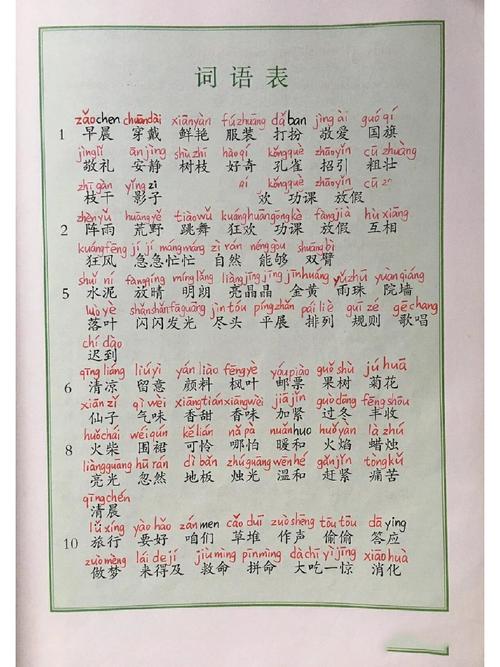 词语表
zǎochen chuāndài xiānyàn fúzhuāng dǎban jìng ài guó qí
1 早晨 穿戴 鲜艳 服装 打扮 敬爱 国旗
jìnglǐ ānjìng shùzhī hàoqí kǒngquè zhāoyǐn cū zhuàng
敬礼 安静 树枝 好奇 孔雀 招引 粗壮
zhīgàn yǐngzi kǒngquè zhāoyǐn cū
枝干 影子 欢 功课 放假
zhènyǔ huāngyě tiàowǔ kuánghuān gōngkè fàngjià hù xiāng
2 阵雨 荒野 跳舞 狂欢 功课 放假 互相
kuángfēng jí jí mángmáng zì rán nénggòu shuāngbì
狂风 急急忙忙 自然 能够 双臂
shuǐ ní fàngqíng mínglǎng liàngjīngjīng jīnhuáng yǔzhū yuànqiáng
5 水泥 放晴 明朗 亮晶晶 金黄 雨珠 院墙
luòyè shǎnshǎnfāguāng jìntóu píngzhǎn pái liè guī zé gēchàng
落叶 闪闪发光 尽头 平展 排列 规则 歌唱
chí dào
迟到
qīngliáng liúyì yánliào fēngyè yóupiào guǒshù júhuā
6 清凉 留意 颜料 枫叶 邮票 果树 菊花
xiānzǐ qìwèi xiāngtián xiāngwèi jiājǐn guòdōng fēngshōu
仙子 气味 香甜 香味 加紧 过冬 丰收
huǒchái wéiqún kělián nǎpà nuǎnhuo huǒyàn là zhú
8 火柴 围裙 可怜 哪怕 暖和 火焰 蜡烛
liàngguāng hūrán dì bǎn zhúguāng wēnhé gǎnjǐn tòngkǔ
亮光 忽然 地板 烛光 温和 赶紧 痛苦
qīngchén
清晨
lǚxíng yàohǎo zánmen cǎoduī zuòshēng tōutōu dāying
10 旅行 要好 咱们 草堆 作声 偷偷 答应
zuòmèng lái dejí jiùmìng pīnmìng dàchīyìjīng xiāohuà
做梦 来得及 救命 拼命 大吃一惊 消化